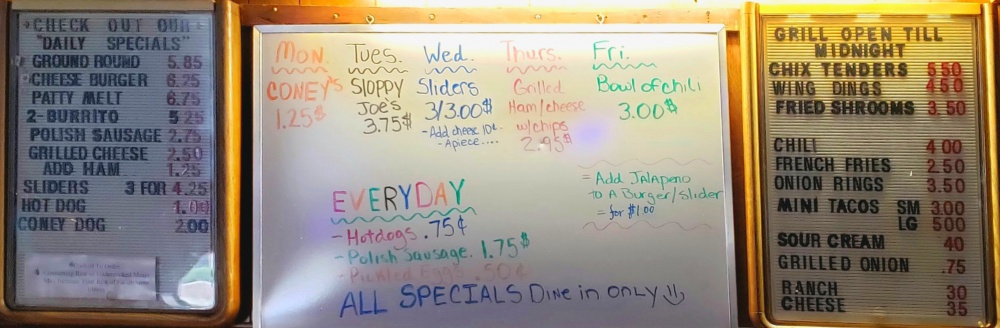 CHECK OUT OUR
"DAILY SPECIALS"
GROUND ROUND 5.85
CHEESE BURGER 6.25
PATTY MELT 6.75
2-BURRITO 5 25
POLISH SAUSAGE 2.75
GRILLED CHEESE 2.50
ADD HAM 1.25
SLIDERS 3 FOR 4.25
HOT DOG 1.00
CONEY DOG 2.00
Mon.
CONEY'S
1.25$
Tues.
Sloppy
Joe's
3.75$
Wed.
Sliders
3/3.00$
- Add cheese 10¢
- Apiece....
Thurs.
Grilled
Ham/cheese
w/chips
2.95$
Fri.
Bowl of chili
3.00$
= Add JAlApeno
to A Burger/Slider
= for $1.00
EVERYDAY
- Hotdogs .75¢
- Polish Sausage. 1.75$
- Pickled Eggs .50¢
ALL SPECIALS Dine in ONLY
GRILL OPEN TILL
MIDNIGHT
CHIX TENDERS 5 50
WING DINGS 4 50
FRIED SHROOMS 3.50
CHILI 4 00
FRENCH FRIES 2.50
ONION RINGS 3.50
MINI TACOS SM 3.00
LG 500
SOUR CREAM 40
GRILLED ONION .75
RANCH 30
CHEESE 35